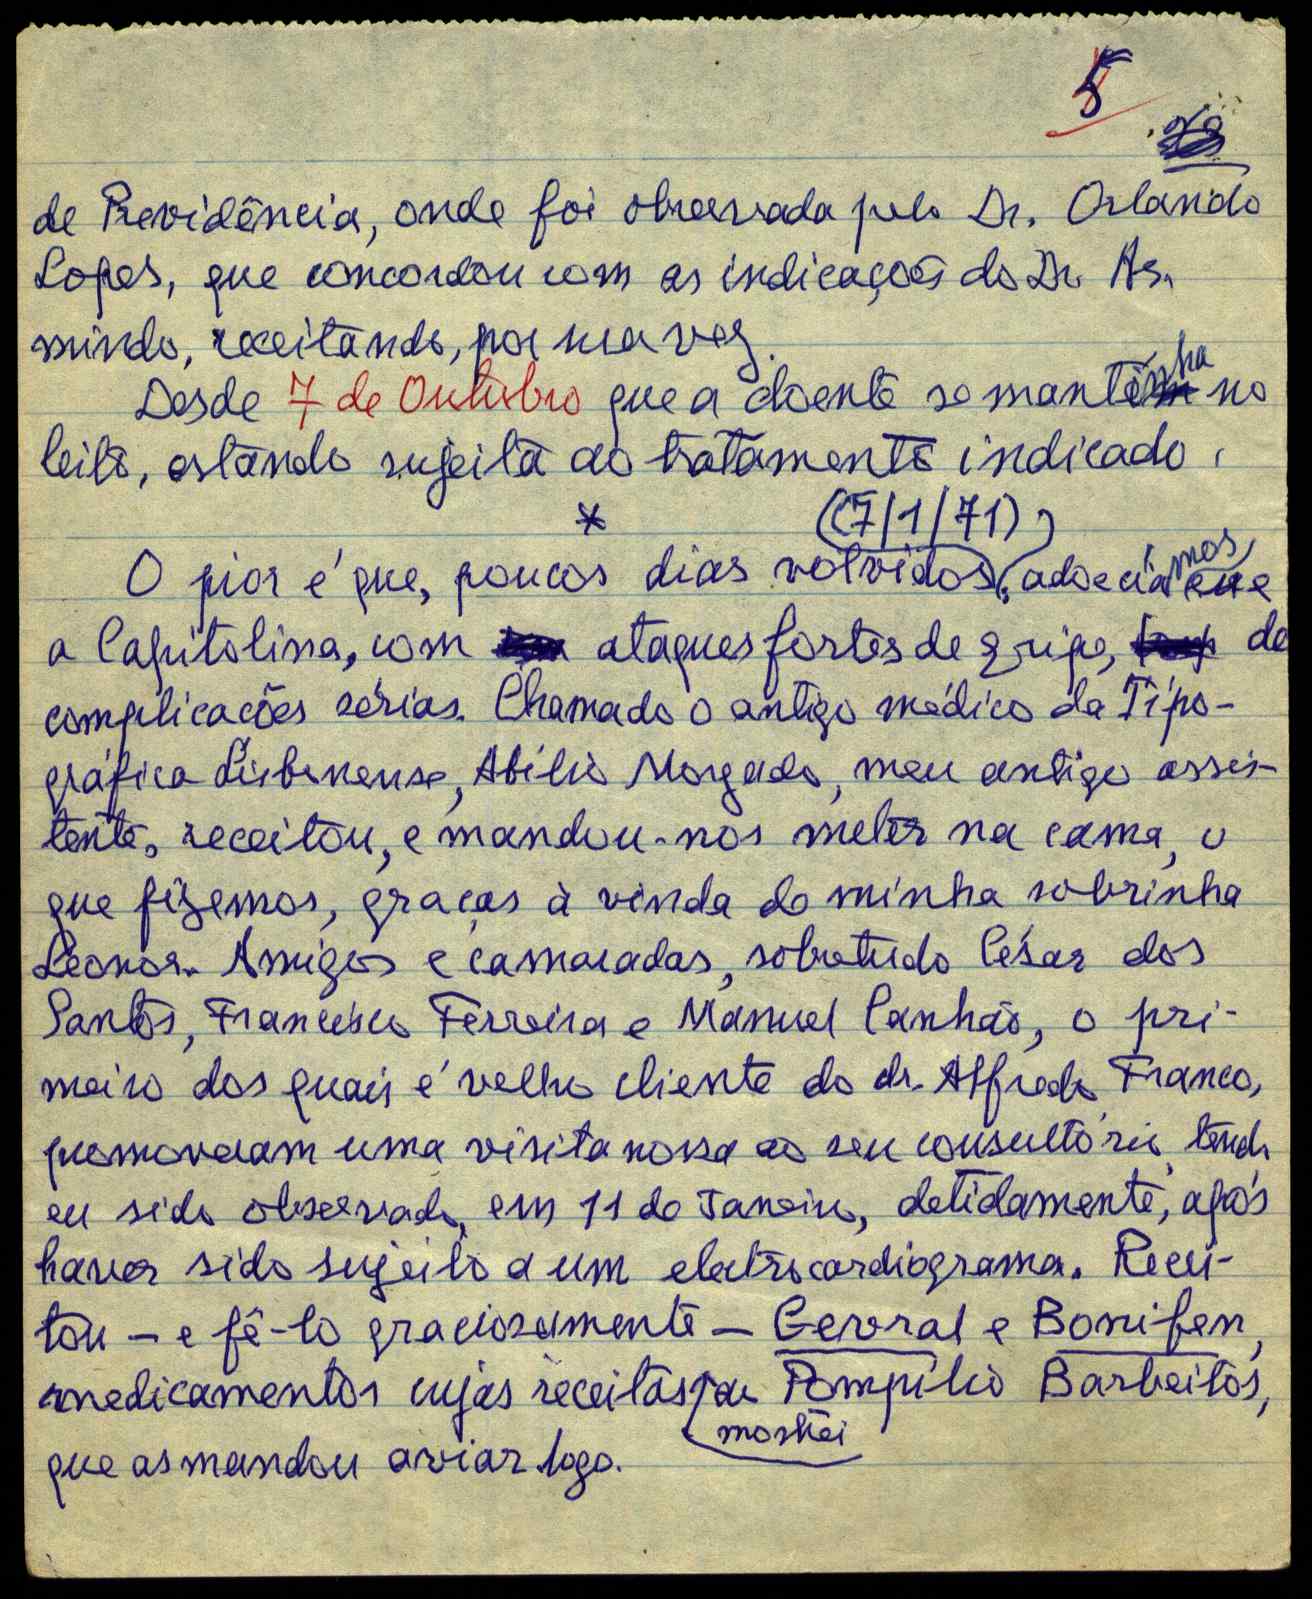 5
de Previdência, onde foi observada pelo Dr. Orlando
Lopes, que concordou com as indicações do Dr. Ar-
mindo, receitando, por sua vez.
Desde 7 de Outubro que a doente se mantinha no
leito, estando sujeita ao tratamento indicado.
*
(7/1/71),
O pior é que, poucos dias volvidos, adoecíamos, eu e
a Capitolina, com ataques fortes de gripe, de
complicações sérias. Chamado o antigo médico da Tipo-
gráfica Lisbonense, Abílio Morgado, meu antigo assis-
tente, receitou, e mandou-nos meter na cama, o
que fizemos, graças à vinda de minha sobrinha
Leonor. Amigos e camaradas, sobretudo César dos
Santos, Francisco Ferreira e Manuel Canhão, o pri-
meiro dos quais é velho cliente do dr. Alfredo Franco,
promoveram uma visita nossa ao seu consultório, tendo
eu sido observado, em 11 de Janeiro, detidamente, após
haver sido sujeito a um electrocardiograma. Recei-
tou – e fê-lo graciosamente – Gevral e Bonifen,
medicamentos cujas receitas mostrei ao Pompílio Barbeitos,
que as mandou aviar logo.